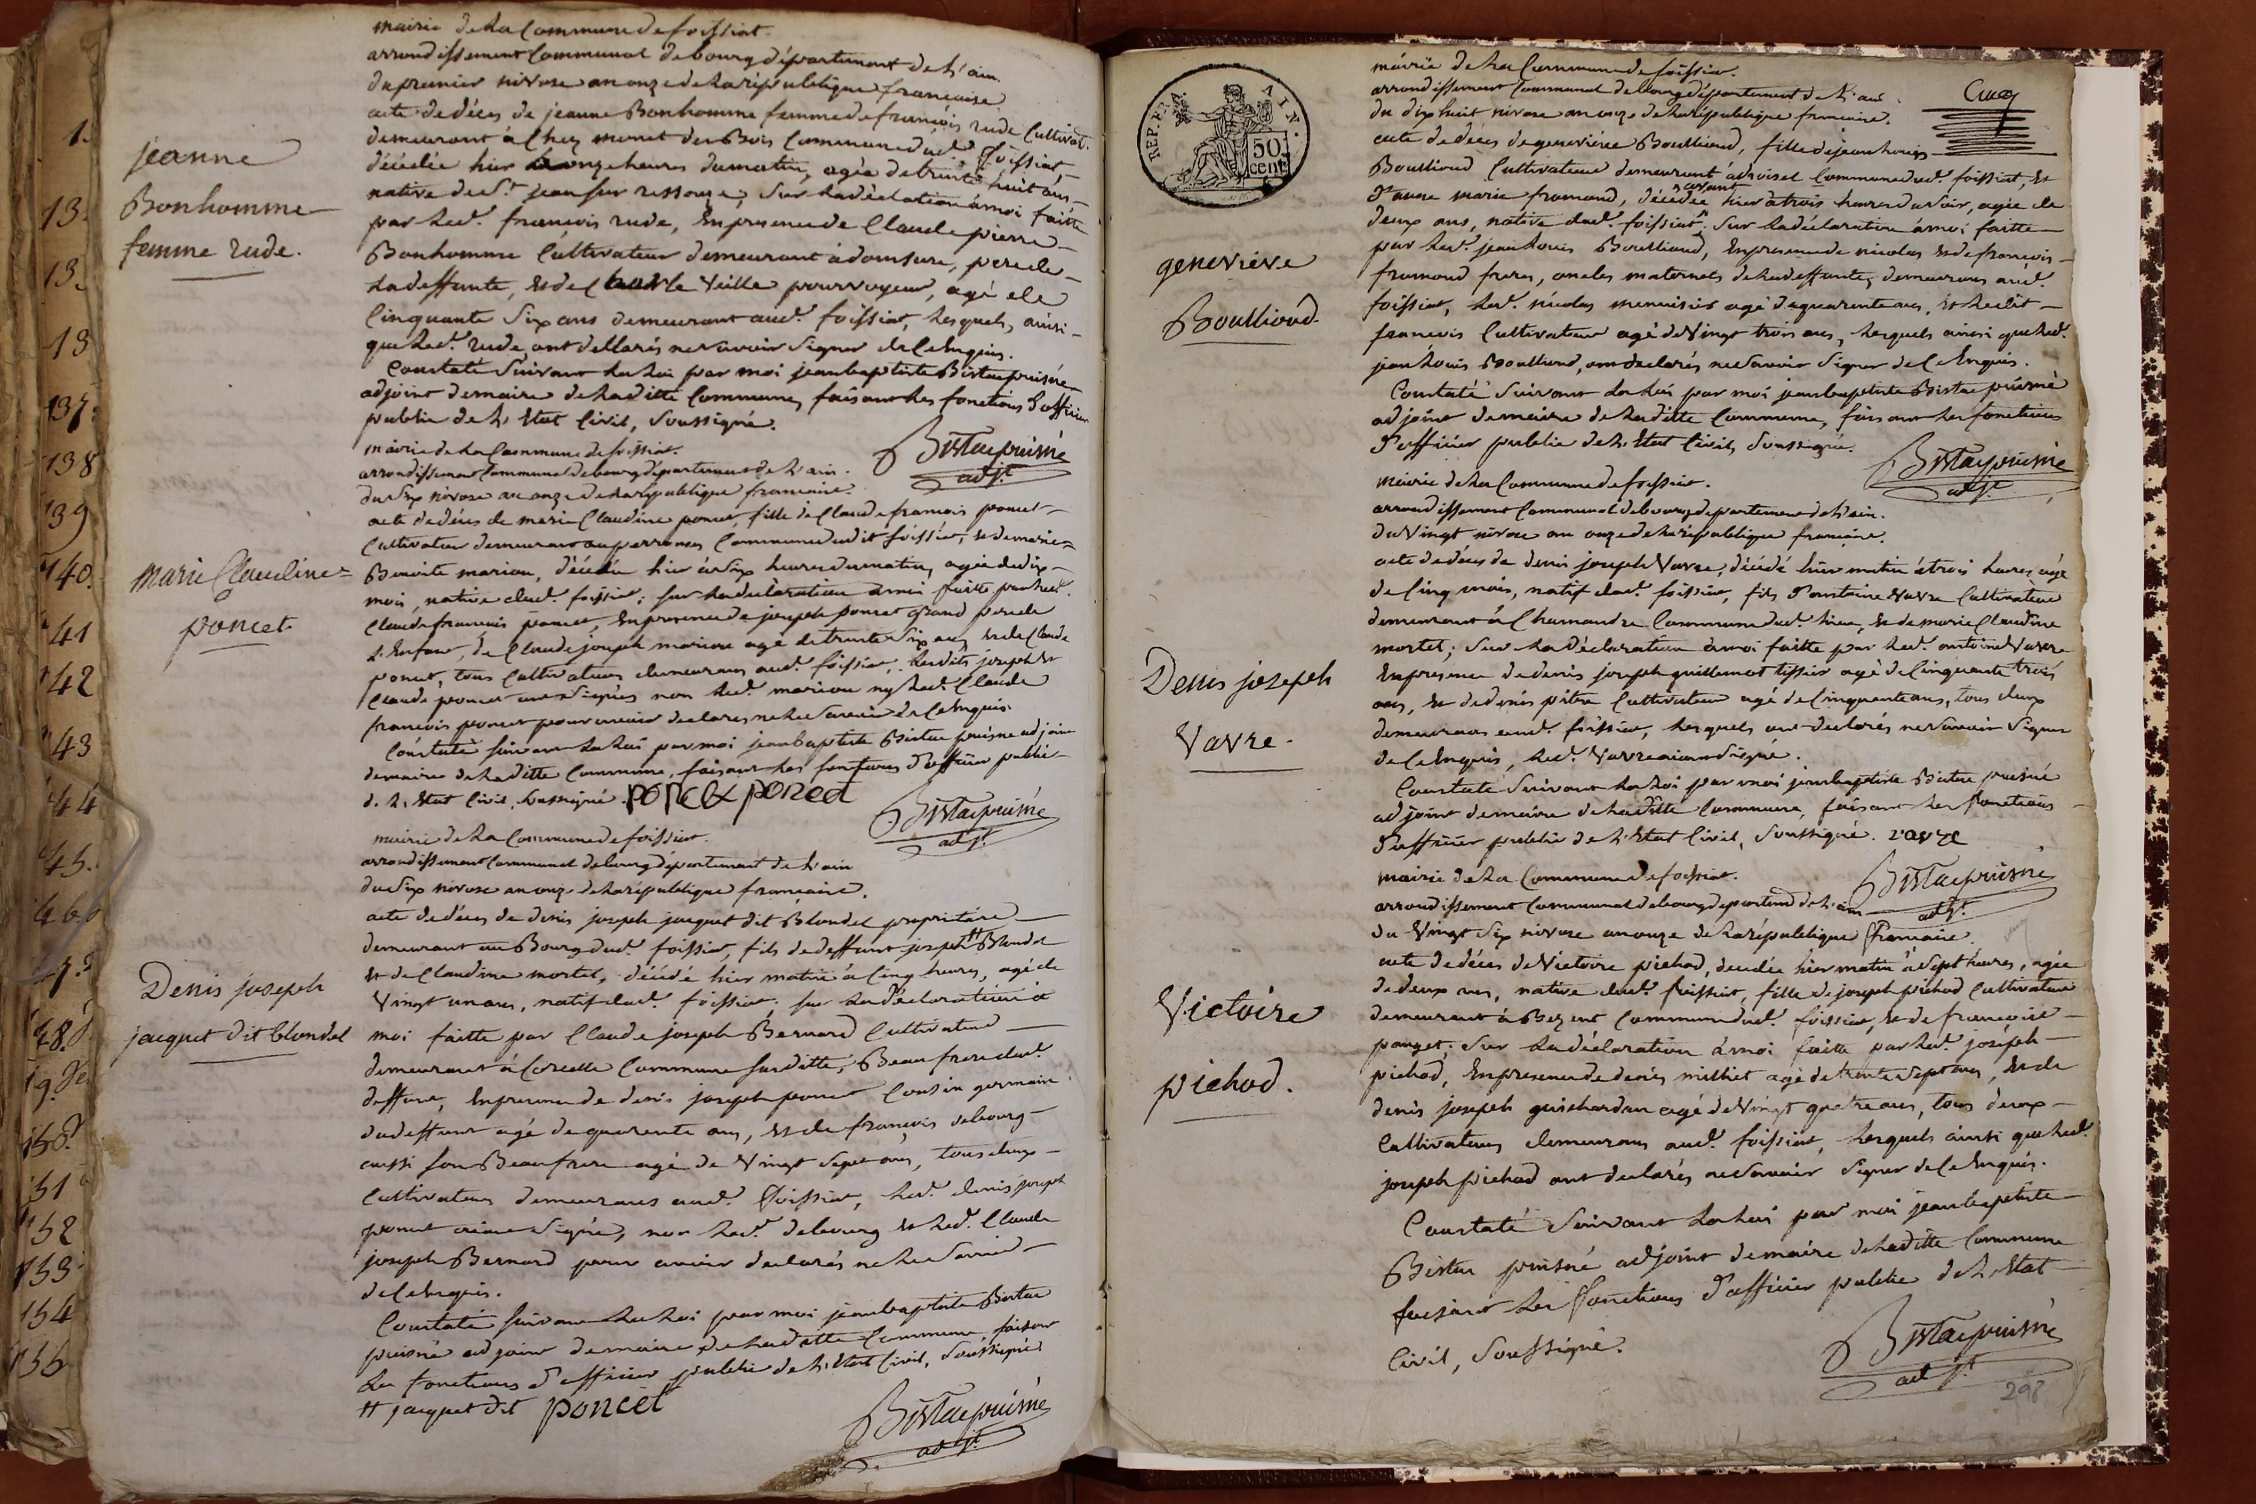 mairie de La Commune de foissiat.
arrondissement Communal de bourg département de L'ain.
du premier nivose an onze de La république francaise.
acte de décès de jeanne Bonhomme femme de francois rude Cultivat.
demeurant à Chez monet des Bois Commune dud. foissiat,
décédée hier à onze heures du matin, agée de trente huit ans,
native de St. jean sur ressouze, sur La déclaration à moi faitte
par Led. francois rude, En presence de Claude pierre
Bonhomme Cultivateur demeurant à domsure, pere de
La deffunte, Et de Veille pourvoyeur, agé de
Cinquante Six ans demeurant aud. foissiat, Lesquels, ainsi
que Led. rude ont déllarés ne Savoir Signer de Ce Enquis.
Constaté Suivant La Loi par moi jean baptiste Bistac puisné
adjoint de maire de Laditte Commune, faisant Les fonctions d'officier
public de L'Etat Civil, Soussigné.
Bistac puisné
adjt.
jeanne
Bonhomme
femme rude.
mairie de La Commune de foissiat.
arrondissement Communal de bourg département de L'ain.
du Six nivose an onze de La république francaise.
acte de décès de marie Claudine poncet, fille de Claude francois poncet
Cultivateur demeurant aux perrones Commune dudit foissiat, et de marie
Benoite marion, décédée hier à Six heures du matin, agée de dix
mois, native dud. foissiat; Sur La déclaration à moi faitte par Led.
Claude francois poncet, En presence de joseph poncet Grand pere de
L'Enfant, de Claude joseph marion agé de trente Six ans, et de Claude
poncet, tous Cultivateurs demeurans aud. foissiat, Lesdits joseph et
Claude poncet ont Signés non Led. marion ny Led. Claude
francois poncet pour avoir declarés ne Le Savoir de Ce Enquis.
Constaté Suivant La Loi par moi jean baptiste Bistac puisné adjoint
de maire de Laditte Commune, faisant Les fonctions d'officier public
de L'Etat Civil, Soussigné. poncet poncet
Bistac puisné
adjt.
marie Claudine
poncet
mairie de La Commune de foissiat.
arrondissement Communal de bourg département de L'ain
du Six nivose an onze de La république francaise.
acte de décès de denis joseph jacquet dit Blondel propriétaire
demeurant au Bourg dud. foissiat, fils de deffunt joseph # Blondel
et de Claudine mortel, décédé hier matin à Cinq heures, agé de
Vingt un ans, natif dud. foissiat; Sur La déclaration à
moi faitte par Claude joseph Bernard Cultivateur
demeurant à Corcelle Commune Susditte, Beau frere dud.
deffunt, En presence de denis joseph poncet Cousin germain
du deffunt agé de quarente ans, et de francois delbourg
aussi Son Beau frere agé de Vingt Sept ans, tous deux
Cultivateurs demeurans aud. foissiat, Led. denis joseph
poncet aiant Signé, non Led. delbourg et Led. Claude
joseph Bernard pour avoir declarés ne Le Savoir
de Ce Enquis.
Constaté Suivant La Loi par moi jean baptiste Bistac
puisné adjoint de maire de Laditte Commune, faisant
Les fonctions d'officier public de L'Etat Civil, Soussigné.
# jacquet dit poncet
Bistac puisné
adjt.
Denis joseph
jacquet dit blondel
1.
13.
13.
13
137.
138
139
140.
141
142
143
144
145.
146
151
152
153
154
155
REP. FRA.
AIN.
50
cent
mairie de La Commune de foissiat.
arrondissement Communal de bourg département de L'ain.
du dix huit nivose an onze de La république francaise.
acte de décès de genevieve Boullioud, fille de jean Louis
Boullioud Cultivateur demeurant à Commune dud. foissiat, et
d'anne marie fromond, décédée avant hier à trois heures du Soir, agée de
deux ans, native dud. foissiat. Sur La déclaration à moi faitte
par Led. jean Louis Boullioud, En presence de nicolas et de francois
fromond freres, oncles maternels de La deffunte, demeurans aud.
foissiat, Led. nicolas menuisier agé de quarente ans, et Ledit
francois Cultivateur agé de Vingt trois ans, Lesquels ainsi que Led.
jean Louis Boullioud, ont declarés ne Savoir Signer de Ce Enquis.
Constaté Suivant La Loi par moi jean baptiste Bistac puisné
adjoint de maire de Laditte Commune, faisant Les fonctions
d'officier public de L'Etat Civil, Soussigné.
Bistac puisné
adjt.
genevieve
Boullioud
mairie de La Commune de foissiat.
arrondissement Communal de bourg département de L'ain.
du Vingt nivose an onze de La république francaise.
acte de décès de denis joseph Vavre, décédé hier matin à trois heures, agé
de Cinq mois, natif dud. foissiat, fils d'antoine Vavre Cultivateur
demeurant à Chamandre Commune dud. Lieu, et de marie Claudine
mortel; Sur La déclaration à moi faitte par Led. antoine Vavre
En presence de denis joseph guillemot tissier agé de Cinquante trois
ans, et de denis pitre Cultivateur agé de Cinquante ans, tous deux
demeurans aud. foissiat, Lesquels ont declarés ne Savoir Signer
de Ce Enquis, Led. Vavre aiant Signé.
Constaté Suivant La Loi par moi jean baptiste Bistac puisné
adjoint de maire de Laditte Commune, faisant Les fonctions
d'officier public de L'Etat Civil, Soussigné. vavre
Bistac puisné
adjt.
Denis joseph
Vavre.
mairie de La Commune de foissiat.
arrondissement Communal de bourg département de L'ain
du Vingt Six nivose an onze de La république francaise.
acte de décès de Victoire pichod, decédée hier matin à Sept heures, agée
de deux ans, native dud. foissiat, fille de joseph pichod Cultivateur
demeurant à Bezent Commune dud. foissiat, et de francoise
ponget; Sur La déclaration à moi faitte par Led. joseph
pichod, En presence de denis milliet agé de trente Sept ans, et de
denis joseph guichardan agé de Vingt quatre ans, tous deux
Cultivateurs demeurans aud. foissiat, Lesquels ainsi que Led.
joseph pichod ont declarés ne Savoir Signer de Ce Enquis.
Constaté Suivant La Loi par moi jean baptiste
Bistac puisné adjoint de maire de Laditte Commune
faisant Les fonctions d'officier public de L'Etat
Civil, Soussigné.
Bistac puisné
adjt.
Victoire
pichod.
298